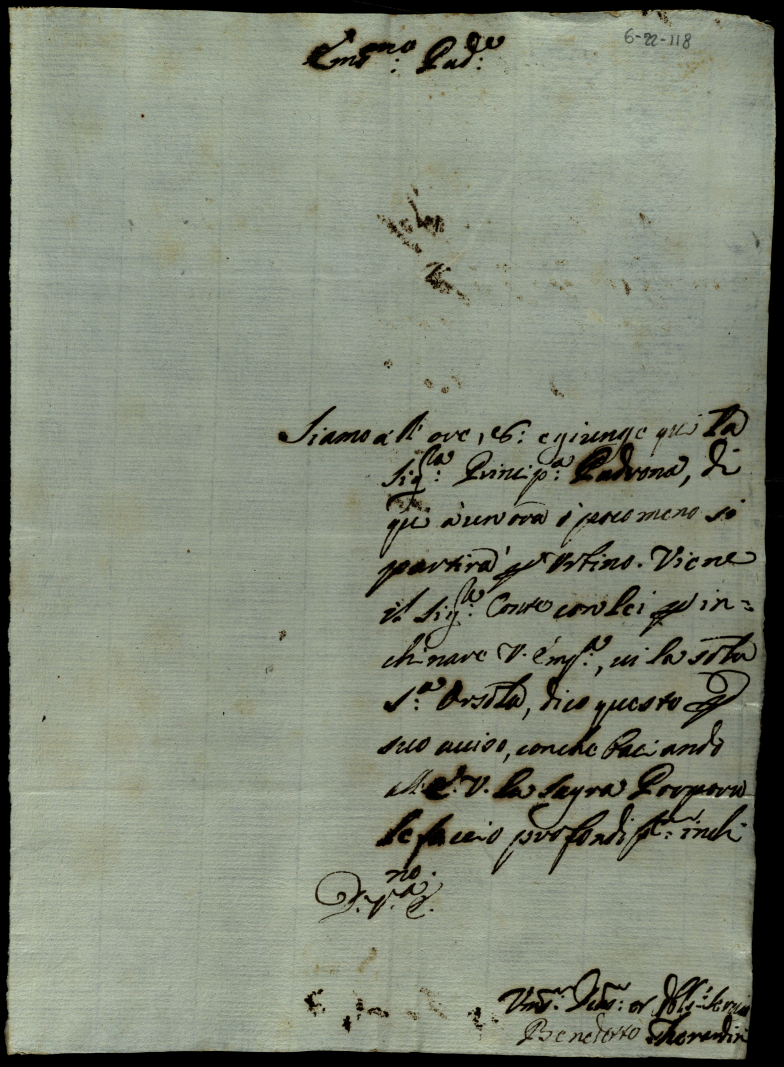 6-22-118
Em.mo Pad.e
Siamo a l'ore, 16: e giunge qui la
Sig.ra Princip.a Padrona, di
qui à un ora ò poco meno si
partirà p Urbino. Viene
il Sig.r Conte con lei p in=
chinare V. Em.a, vi la solita
S.a Orsola, dico questo p
suo auiso, con che baciando
all' E. V. la sagra Porpora
le faccio profondiss.o inchi
no.
D. V.a E.
Um.o Deu.o et Obl.o Seruo
Benedetto